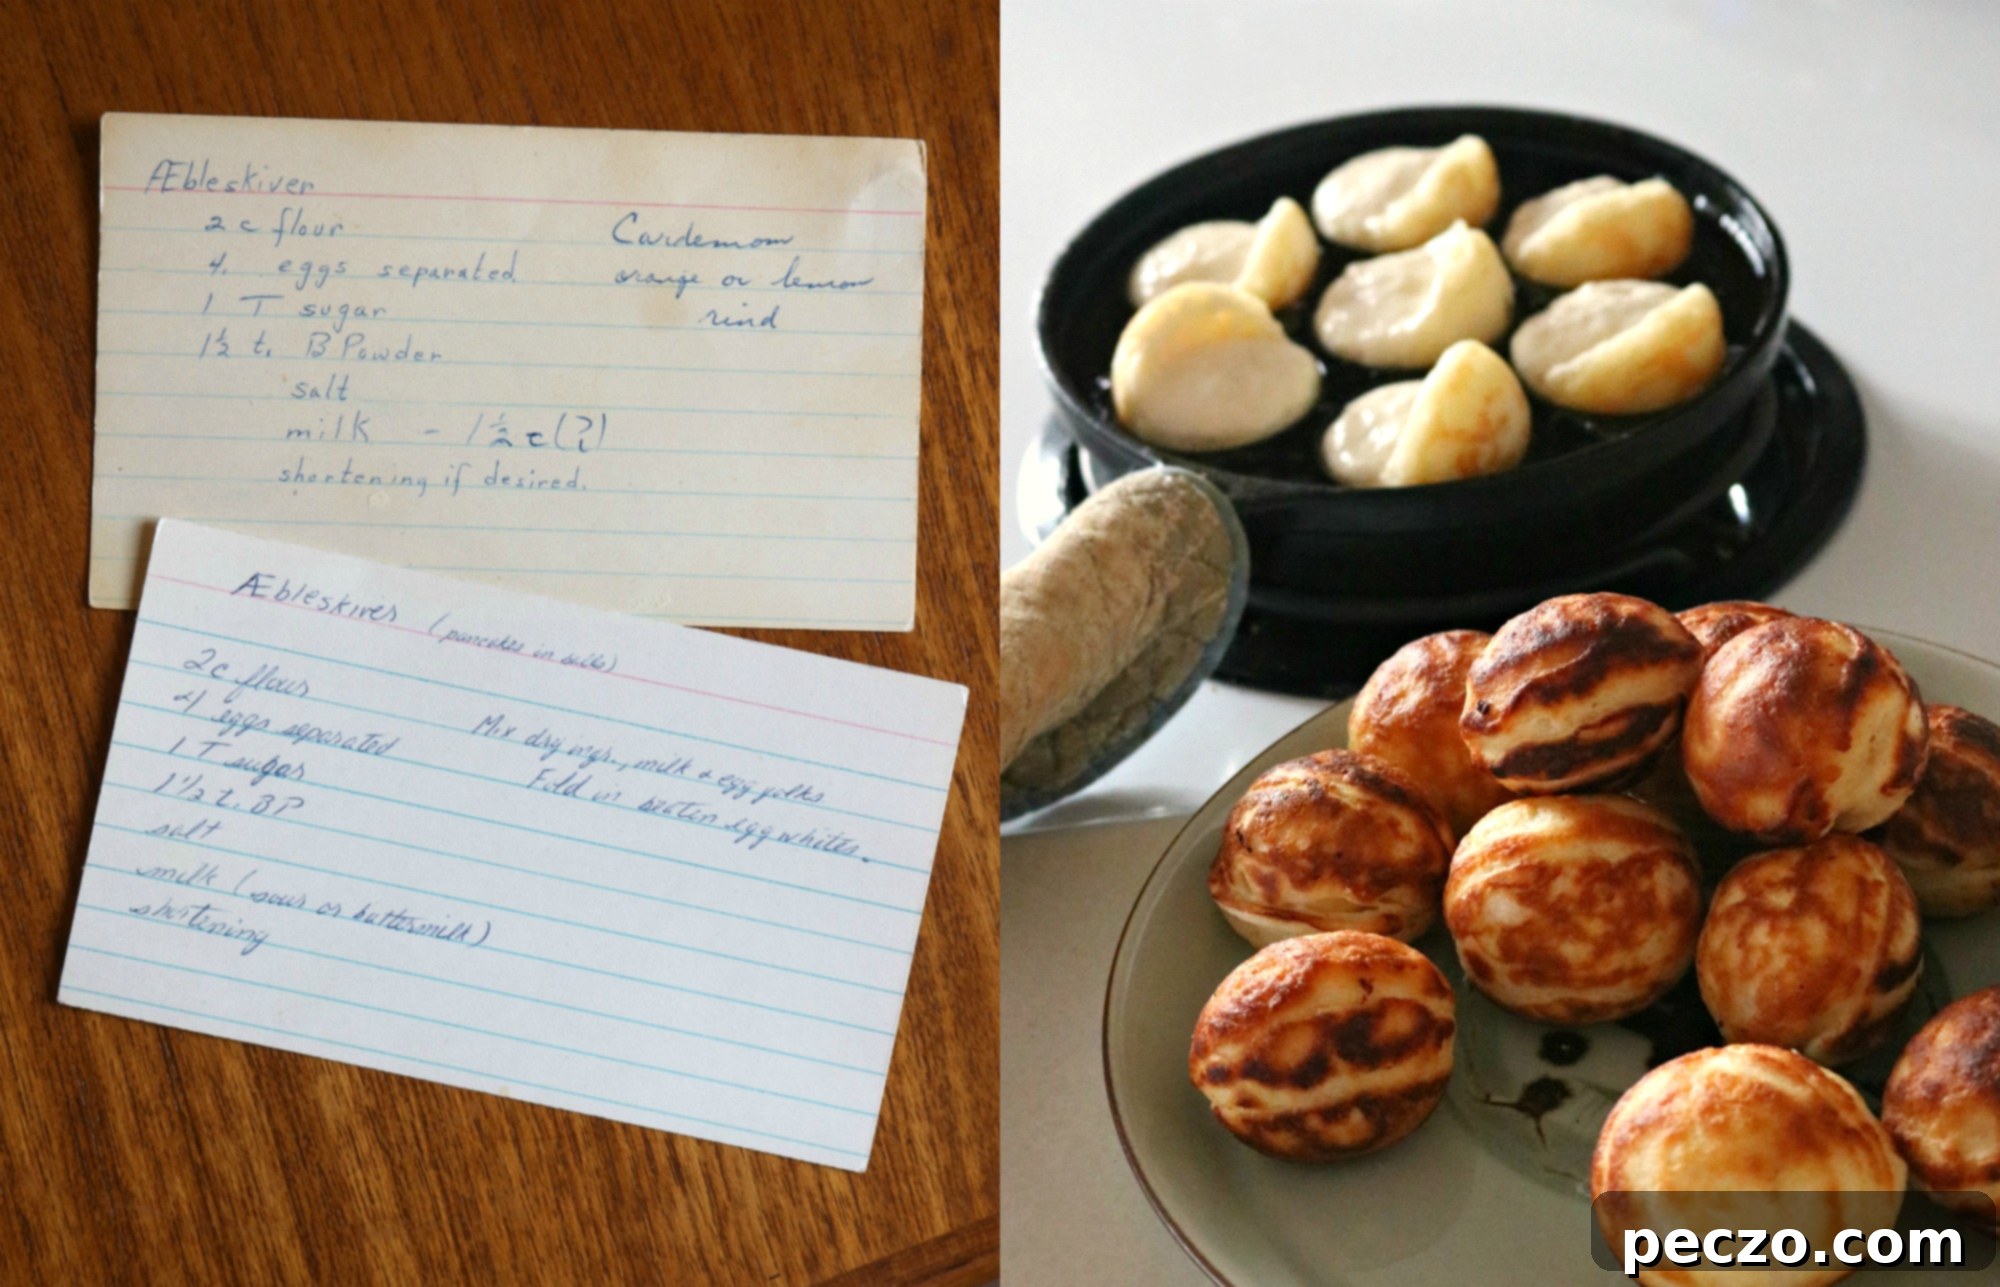 Æbleskiver
2 c flour
4. eggs separated
1 T sugar
1½ t. B Powder
salt
milk - 1½ c (?)
shortening if desired.
Cardemom
orange or lemon
rind
Æbleskiver (pancakes in balls)
2c flour
4 eggs separated
1 T sugar
1½ t. BP
salt
milk (sour or buttermilk)
shortening
Mix dry ingr., milk & egg yolks
Fold in beaten egg whites.
peczo.com